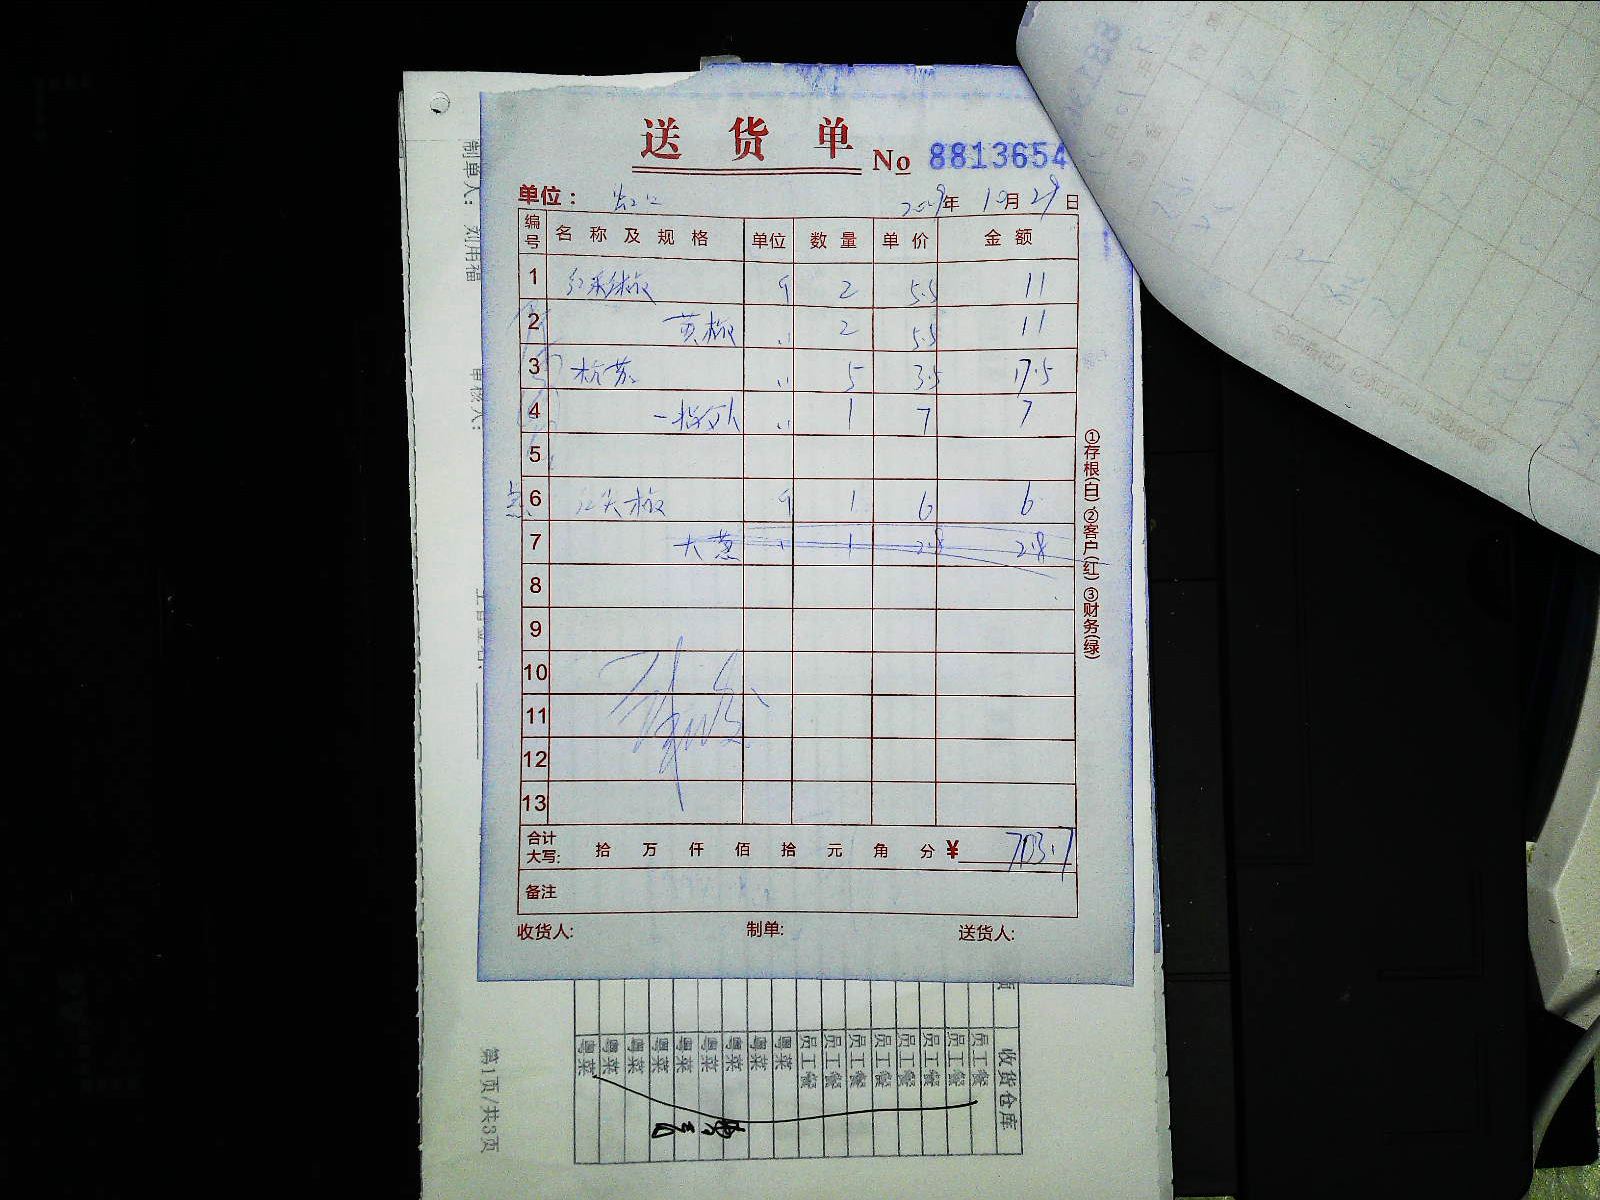 送货单 No 8813654
单位： 2019年 10月 29日
编号 名称及规格 单位 数量 单价 金额
1 红彩椒 斤 2 5.5 11
2 黄椒 〃 2 5.5 11
3 杭茄 〃 5 3.5 17.5
4 〃 1 7 7
5
6 红尖椒 斤 1 6 6
7 大葱 〃 1 2.8 2.8
8
9
10
11
12
13
合计大写: 拾 万 仟 佰 拾 元 角 分 ¥ 703.7
备注
收货人: 制单: 送货人:
①存根(白) ②客户(红) ③财务(绿)
制单人: 刘用福
审核人:
第1页/共3页
收货仓库
员工餐
员工餐
员工餐
员工餐
员工餐
员工餐
员工餐
员工餐
粤菜
粤菜
粤菜
粤菜
粤菜
粤菜
粤菜
粤菜
粤菜